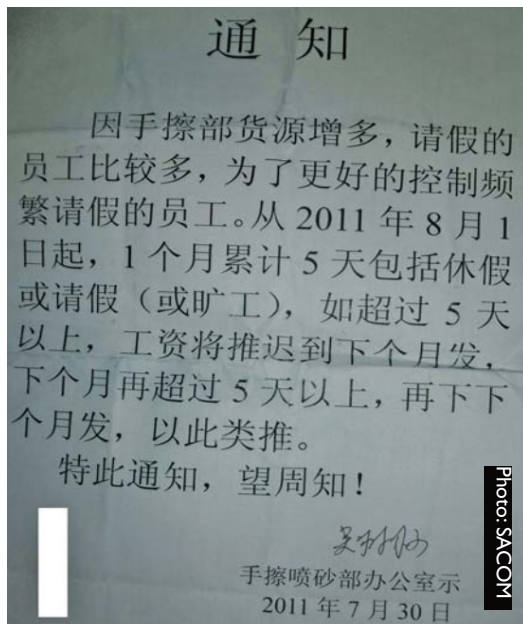 通 知
因手擦部货源增多，请假的
员工比较多，为了更好的控制频
繁请假的员工。从 2011 年 8 月 1
日起，1 个月累计 5 天包括休假
或请假（或旷工），如超过 5 天
以上，工资将推迟到下个月发，
下个月再超过 5 天以上，再下下
个月发，以此类推。
特此通知，望周知！
手擦喷砂部办公室示
2011 年 7 月 30 日
Photo: SACOM